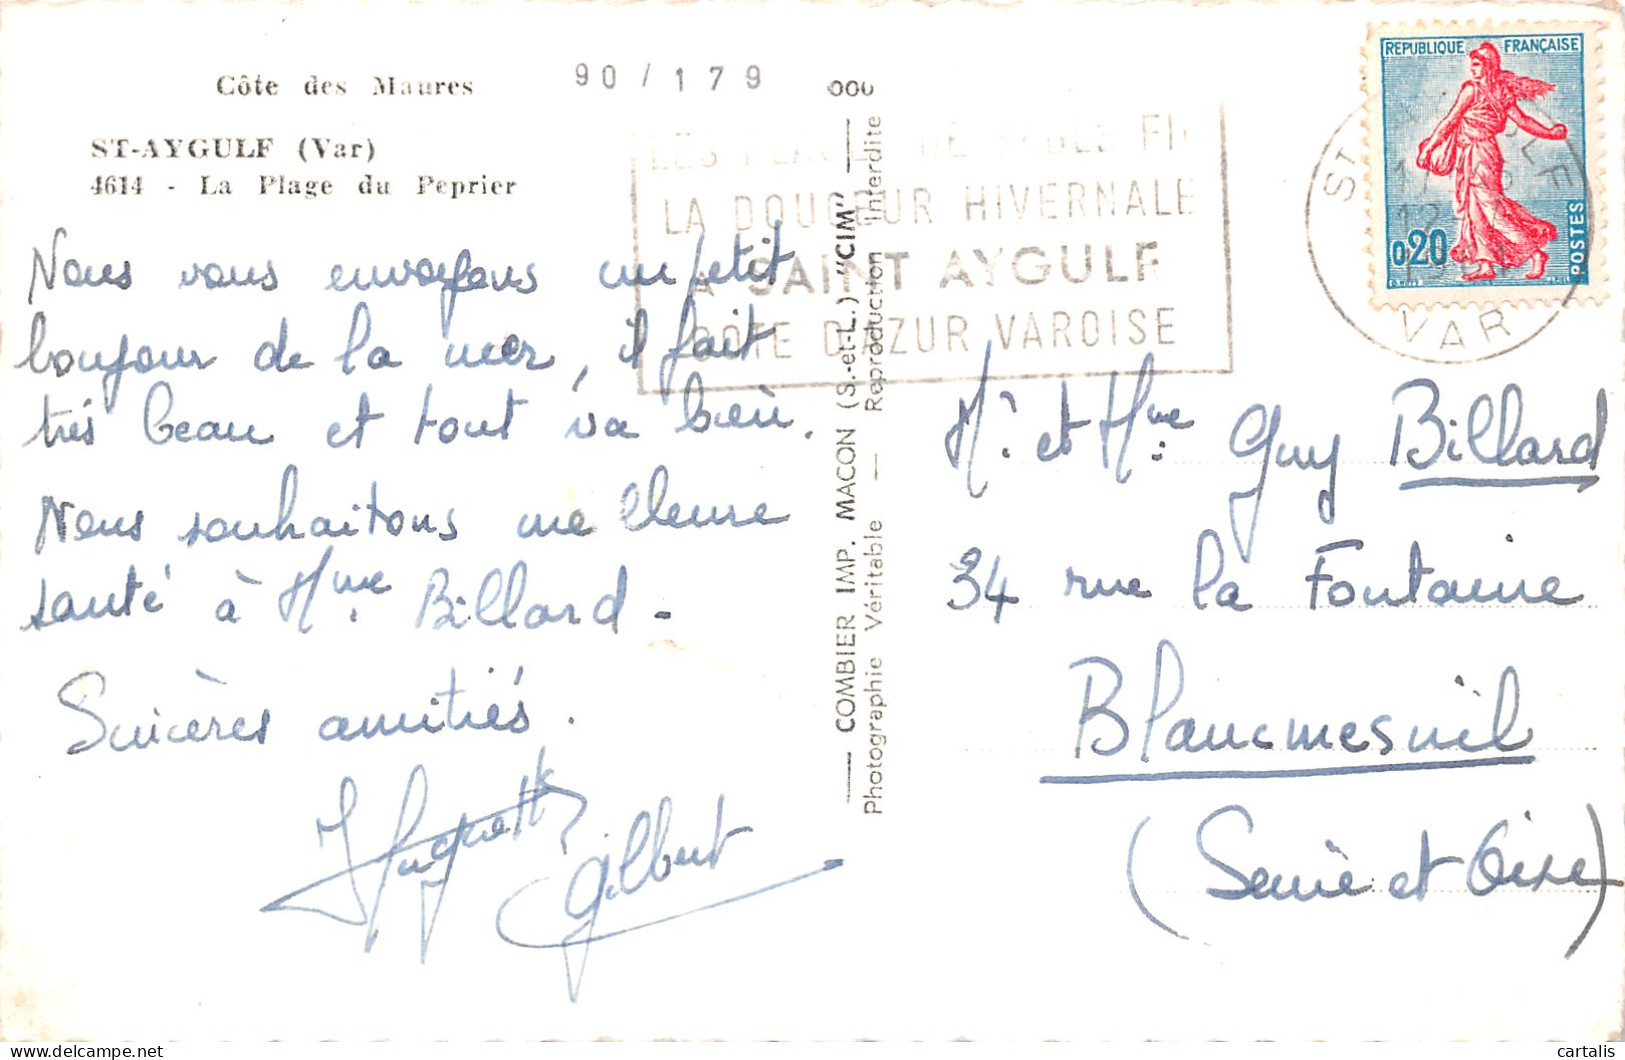 Côte des Maures
90 / 179
000
ST-AYGULF (Var)
4614 - La Plage du Peprier
Nous vous envoyons un petit
bonjour de la mer, il fait
très beau et tout va bien.
Nous souhaitons meilleure
santé à Mme Billard -
Sincères amitiés.
Huguette
Gilbert
COMBIER IMP. MACON (S.-et-L.) "CIM"
Photographie Véritable — Reproduction Interdite
LES DE SABLE FIN
LA DOUCEUR HIVERNALE
A SAINT AYGULF
COTE D'AZUR VAROISE
REPUBLIQUE FRANÇAISE
0,20
POSTES
ST AYGULF
VAR
Mr. et Mme Guy Billard
34 rue la Fontaine
Blancmesnil
(Seine et Oise)
cartalis
delcampe.net